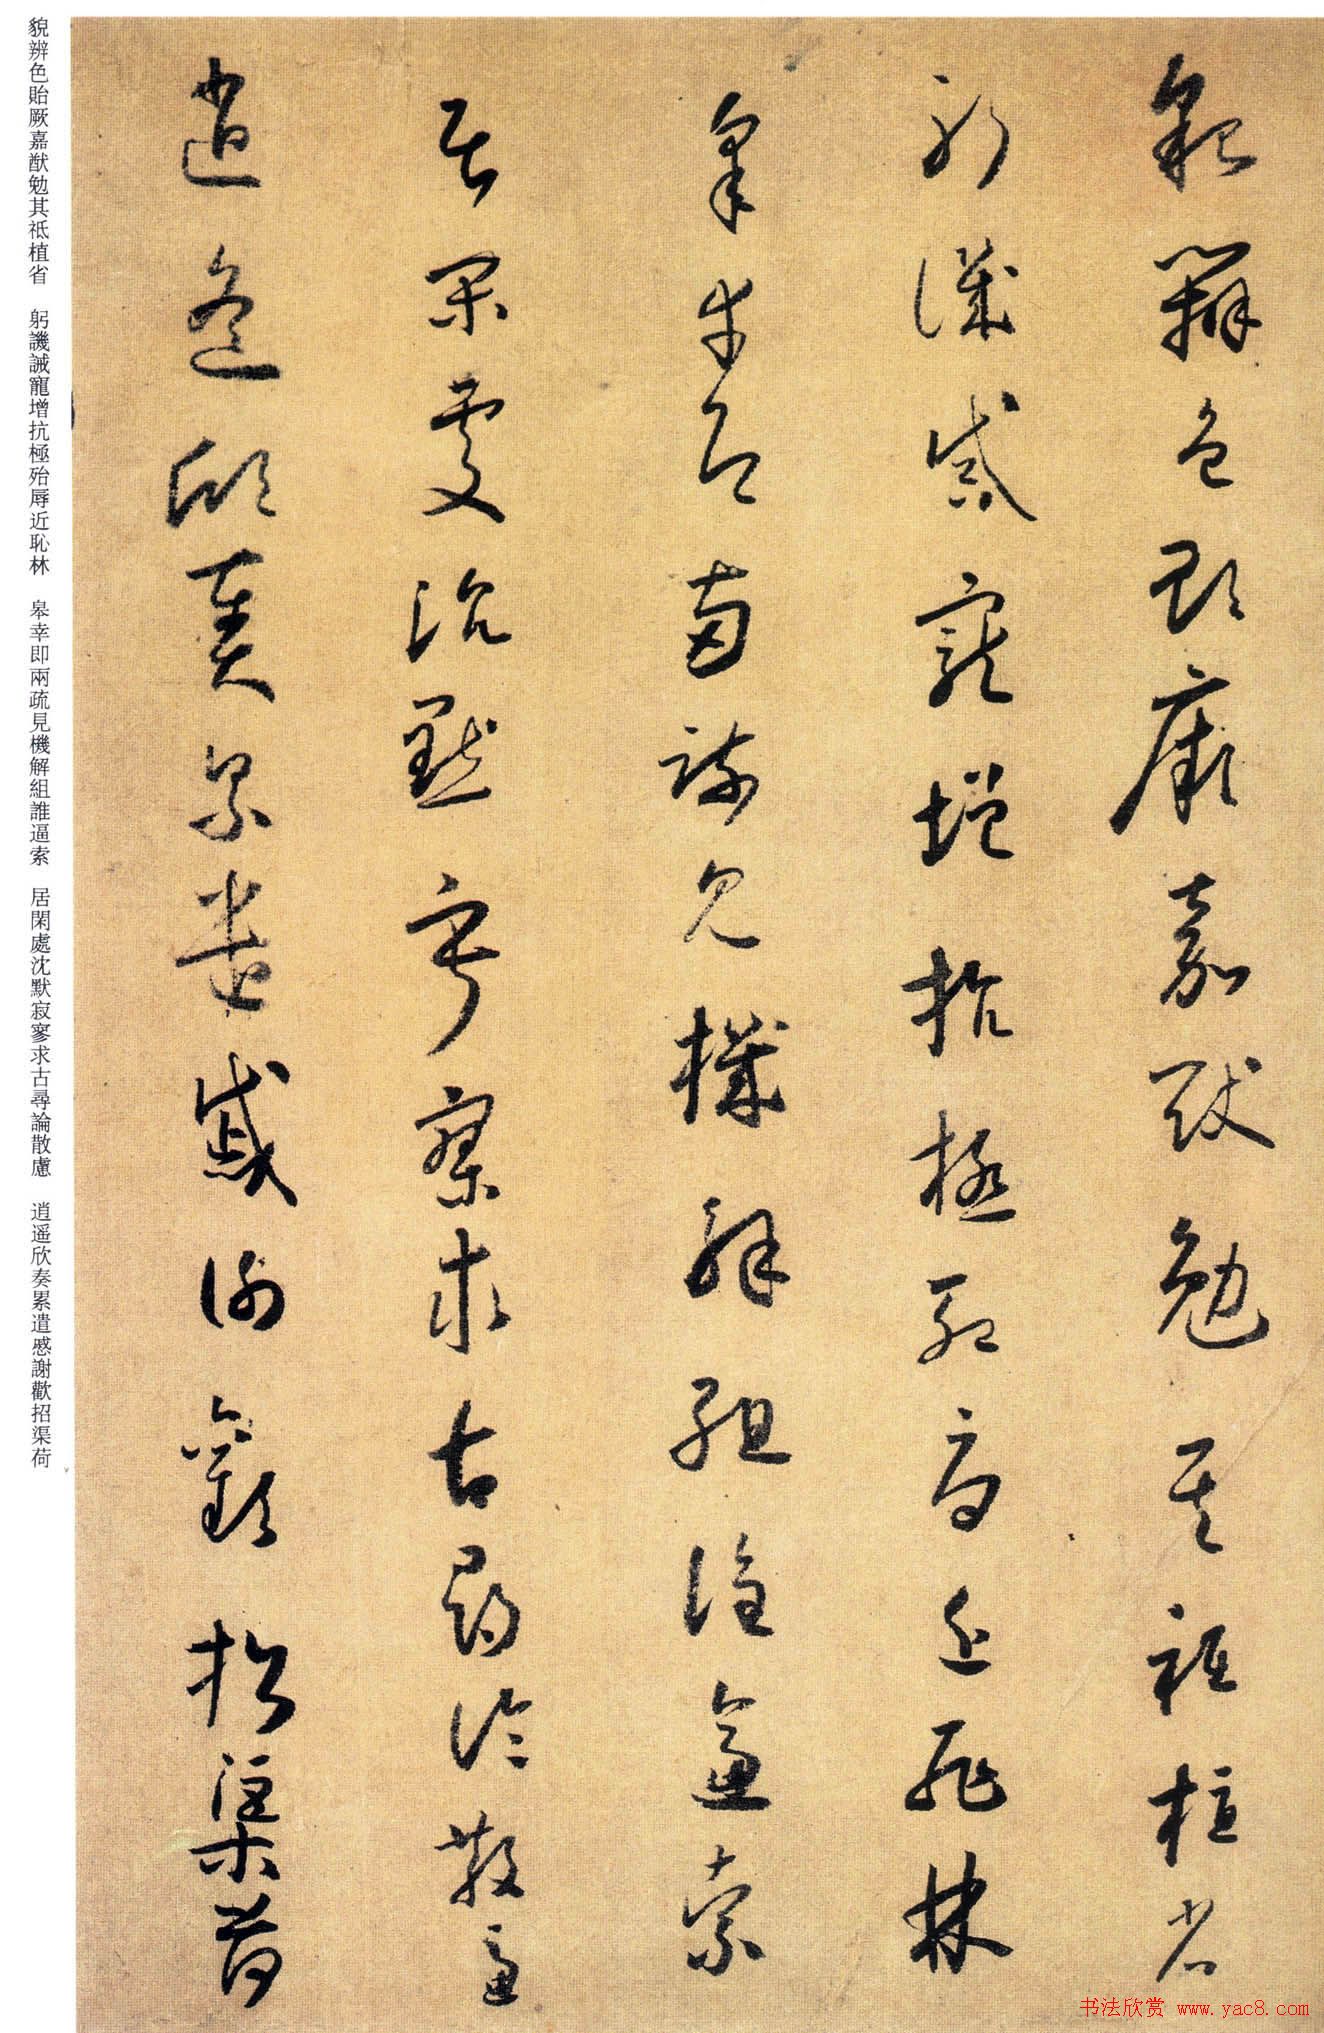 貌辨色貽厥嘉猷勉其祗植省
躬譏誡寵增抗極殆辱近恥林
皋幸即兩疏見機解組誰逼索
居閑處沈默寂寥求古尋論散慮
逍遥欣奏累遣慼謝歡招渠荷
貌辨色貽厥嘉猷勉其祗植省　躬譏誡寵增抗極殆辱近恥林　皋幸即兩疏見機解組誰逼索　居閑處沈默寂寥求古尋論散慮　逍遥欣奏累遣慼謝歡招渠荷
书法欣赏 www.yac8.com